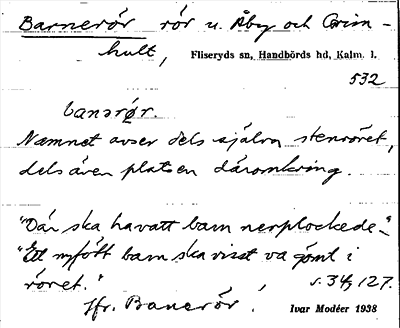 Barnerör rör u. Åby och Grim-
hult,
Fliseryds sn, Handbörds hd, Kalm. l.
532
banǝrǿr.
Namnet avser dels själva stenröret,
dels även platsen däromkring.
"Där ska ha vatt barn nerplockede."
"Ett nyfött barn ska visst va gömt i
röret."
s. 34, 127.
Jfr. Banerör.
Ivar Modéer 1938